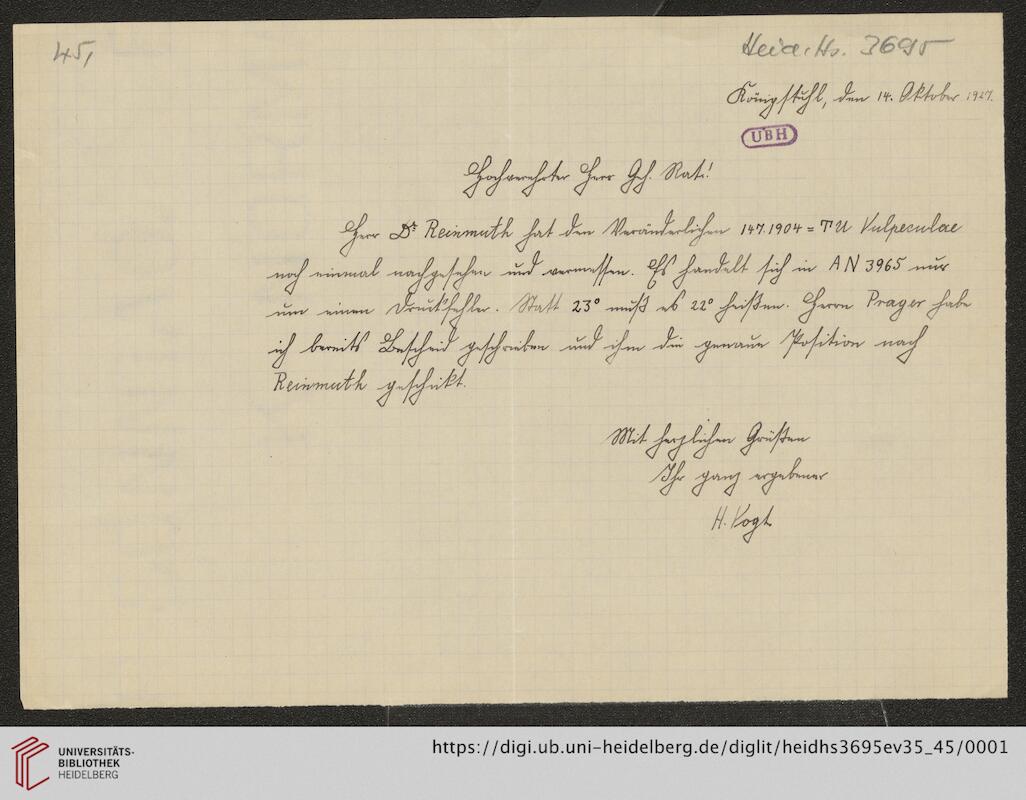 45,
Heid. Hs. 3695
Königstuhl, den 14. Oktober 1927.
UBH
Hochverehrter Herr Geh. Rat!
Herr Dr Reinmuth hat den Veränderlichen 147.1904 = TU Vulpeculae
noch einmal nachgesehen und vermessen. Es handelt sich in AN 3965 nur
um einen Druckfehler. Statt 23° muß es 22° heißen. Herrn Prager habe
ich bereits Bescheid geschrieben und ihm die genaue Position nach
Reinmuth geschickt.
Mit herzlichen Grüßen
Ihr ganz ergebener
H. Vogt
UNIVERSITÄTS-
BIBLIOTHEK
HEIDELBERG
https://digi.ub.uni-heidelberg.de/diglit/heidhs3695ev35_45/0001